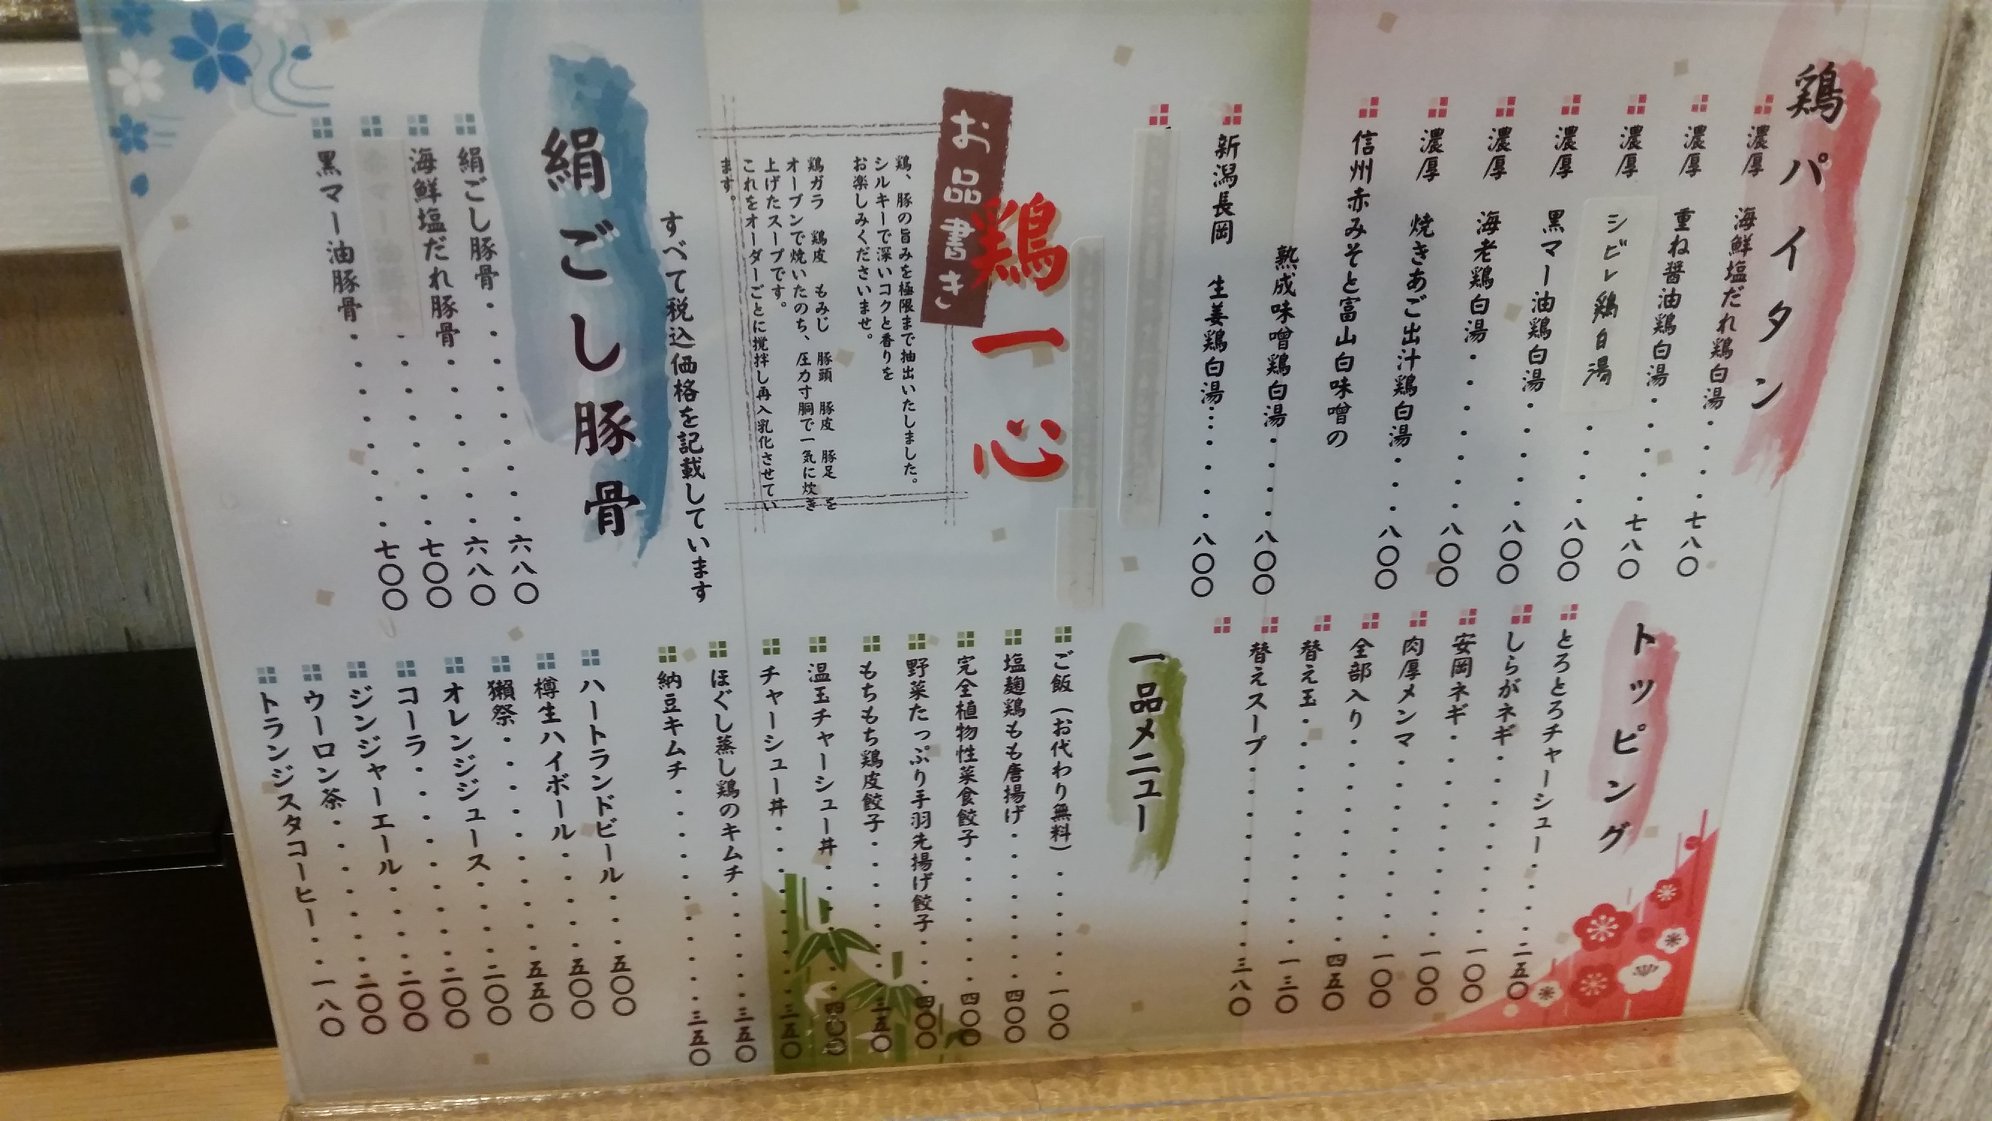 鶏パイタン
濃厚 海鮮塩だれ鶏白湯・・・・七八〇
濃厚 重ね醤油鶏白湯・・・・・七八〇
濃厚 シビレ鶏白湯・・・・八〇〇
濃厚 黒マー油鶏白湯・・・・・八〇〇
濃厚 海老鶏白湯・・・・・・・八〇〇
濃厚 焼きあご出汁鶏白湯・・・・八〇〇
信州赤みそと富山白味噌の
熟成味噌鶏白湯・・・・八〇〇
新潟長岡 生姜鶏白湯・・・・・・八〇〇
トッピング
とろとろチャーシュー・・・・二五〇
しらがネギ・・・・・・・・一〇〇
安岡ネギ・・・・・・・・・一〇〇
肉厚メンマ・・・・・・・・一〇〇
全部入り・・・・・・・・・四五〇
替え玉・・・・・・・・・・一三〇
替えスープ・・・・・・・・三八〇
お品書き
鶏一心
鶏、豚の旨みを極限まで抽出いたしました。
シルキーで深いコクと香りを
お楽しみくださいませ。
鶏ガラ 鶏皮 もみじ 豚頭 豚皮 豚足 を
オーブンで焼いたのち、圧力寸胴で一気に炊き
上げたスープです。
これをオーダーごとに撹拌し再入乳化させてい
ます。
すべて税込価格を記載しています
一品メニュー
ご飯（お代わり無料）・・・・・一〇〇
塩麹鶏もも唐揚げ・・・・・・四〇〇
完全植物性菜食餃子・・・・・四〇〇
野菜たっぷり手羽先揚げ餃子・・・四〇〇
もちもち鶏皮餃子・・・・・・三五〇
温玉チャーシュー丼・・・・・四〇〇
チャーシュー丼・・・・・・・三五〇
ほぐし蒸し鶏のキムチ・・・・・三五〇
納豆キムチ・・・・・・・・・三五〇
絹ごし豚骨
絹ごし豚骨・・・・・・・・六八〇
海鮮塩だれ豚骨・・・・・・六八〇
・・・・・・七〇〇
黒マー油豚骨・・・・・・・七〇〇
ハートランドビール・・・・五〇〇
樽生ハイボール・・・・・・五〇〇
獺祭・・・・・・・・・・五五〇
オレンジジュース・・・・・二〇〇
コーラ・・・・・・・・・二〇〇
ジンジャーエール・・・・・二〇〇
ウーロン茶・・・・・・・・二〇〇
トランジスタコーヒー・・・一八〇